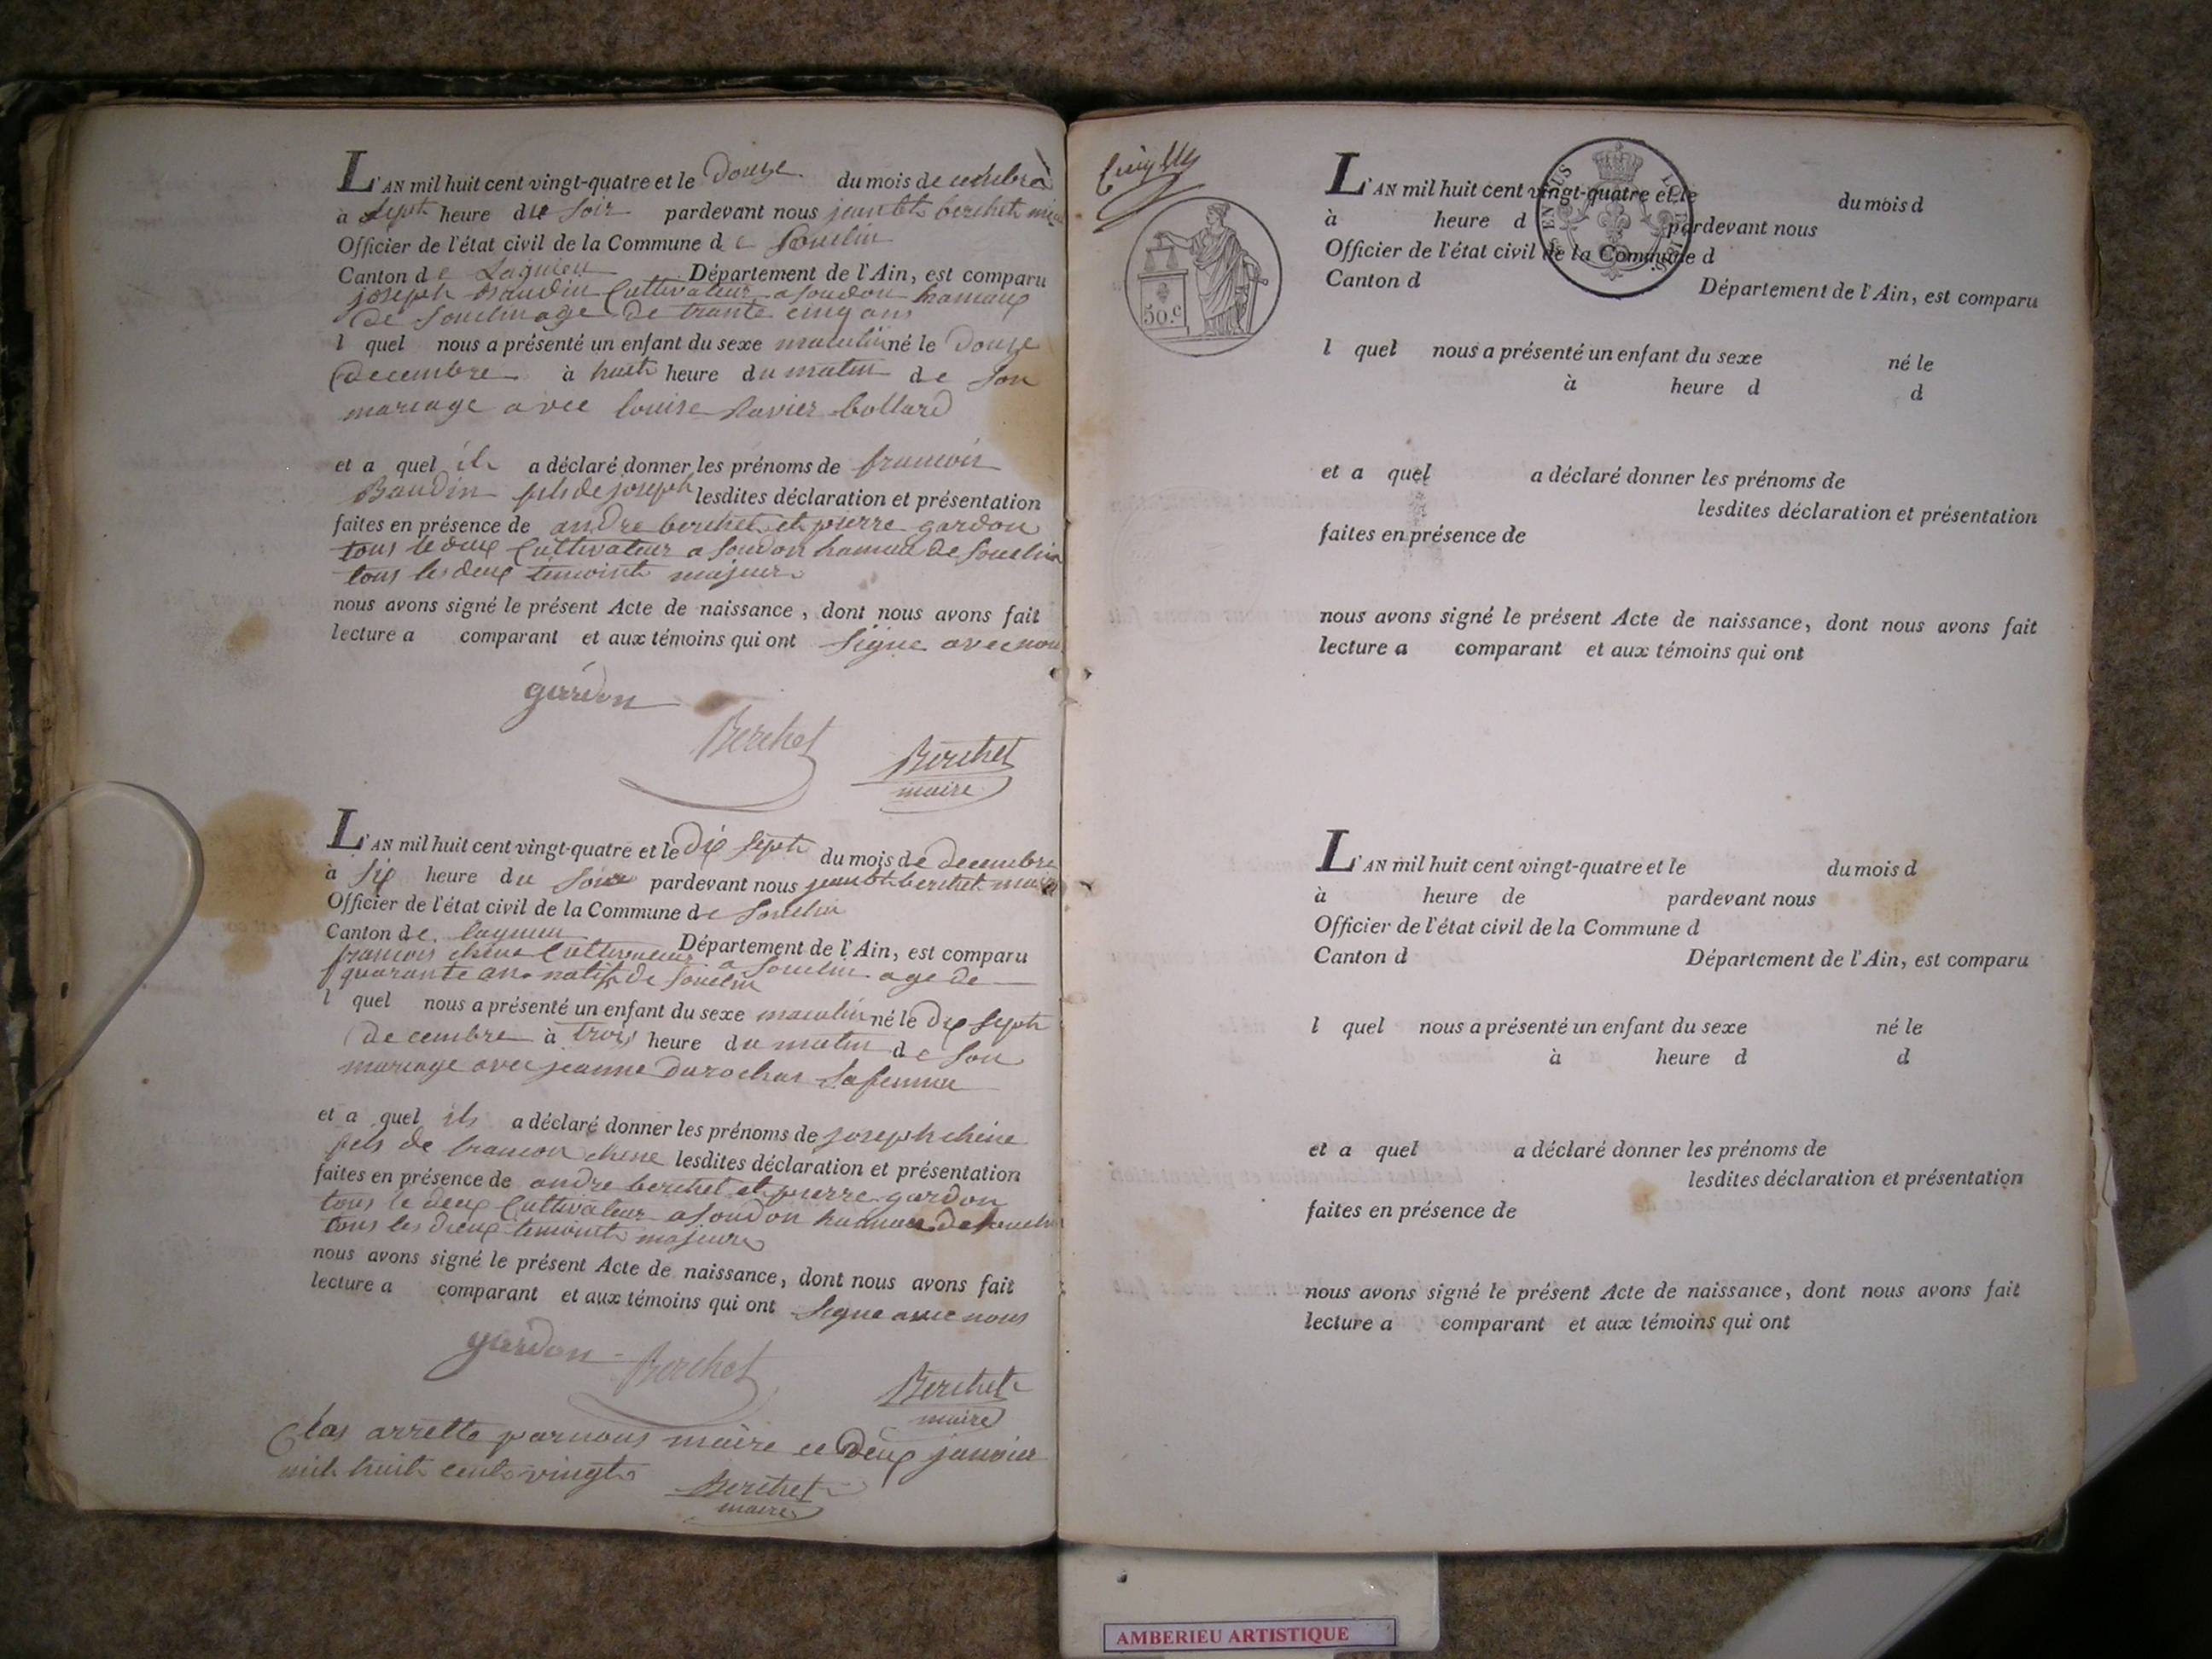 L'AN mil huit cent vingt-quatre et le douze du mois de decembre
à sept heure du soir pardevant nous jean bte berchet maire
Officier de l'état civil de la Commune de Souclin
Canton de Lagnieu Département de l'Ain, est comparu
joseph Baudin Cultivateur a soudon hamaux
de Souclin age de trante cinq ans
l quel nous a présenté un enfant du sexe masculin né le douze
decembre à huit heure du matin de son
mariage avec louise Xavier bollard
et a quel il a déclaré donner les prénoms de francois
Baudin fils de joseph lesdites déclaration et présentation
faites en présence de andre berchet et pierre gardon
tous le deux Cultivateur a soudon hamau de souclin
tous les deux temoint majeur
nous avons signé le présent Acte de naissance, dont nous avons fait
lecture a comparant et aux témoins qui ont signe avec nous
gardon
Berchet
Berchet
maire
L'AN mil huit cent vingt-quatre et le dix sept du mois de decembre
à six heure du soir pardevant nous jean bte berchet maire
Officier de l'état civil de la Commune de Souclin
Canton de lagnieu Département de l'Ain, est comparu
francois chene Cultivateur a Souclin age de
quarante ans natif de Souclin
l quel nous a présenté un enfant du sexe masculin né le dix sept
decembre à trois heure du matin de son
mariage avec jeanne Durochas sa femme
et a quel il a déclaré donner les prénoms de joseph chene
fils de francois chene lesdites déclaration et présentation
faites en présence de andre berchet et pierre gardon
tous le deux Cultivateur a soudon hamau de souclin
tous les deux temoint majeur
nous avons signé le présent Acte de naissance, dont nous avons fait
lecture a comparant et aux témoins qui ont signe avec nous
gardon Berchet
Berchet
maire
Clos arretté par nous maire ce deux janvier
mil huit cent vingt
Berchet
maire
50.c
L'AN mil huit cent vingt-quatre et le du mois d
à heure d pardevant nous
Officier de l'état civil de la Commune d
Canton d Département de l'Ain, est comparu
l quel nous a présenté un enfant du sexe né le
à heure d d
et a quel a déclaré donner les prénoms de
lesdites déclaration et présentation
faites en présence de
nous avons signé le présent Acte de naissance, dont nous avons fait
lecture a comparant et aux témoins qui ont
L'AN mil huit cent vingt-quatre et le du mois d
à heure de pardevant nous
Officier de l'état civil de la Commune d
Canton d Département de l'Ain, est comparu
l quel nous a présenté un enfant du sexe né le
à heure d d
et a quel a déclaré donner les prénoms de
lesdites déclaration et présentation
faites en présence de
nous avons signé le présent Acte de naissance, dont nous avons fait
lecture a comparant et aux témoins qui ont
AMBERIEU ARTISTIQUE